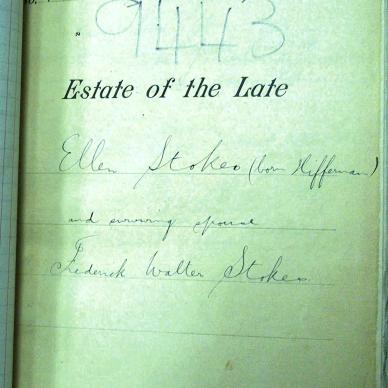 No.
9443
Estate of the Late
Ellen Stokes (born Hifferman)
and surviving spouse
Frederick Walter Stokes